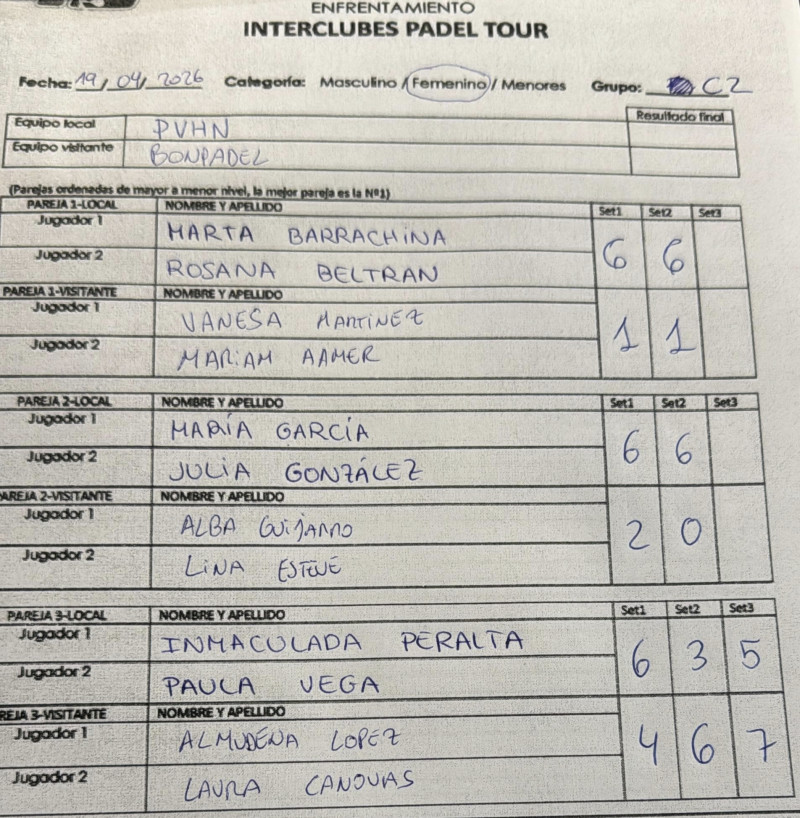 ENFRENTAMIENTO
INTERCLUBES PADEL TOUR
Fecha: 19/04/2026 Categoría: Masculino / Femenino / Menores Grupo: C2
Equipo local PVHN Resultado final
Equipo visitante BONPADEL
(Parejas ordenadas de mayor a menor nivel, la mejor pareja es la Nº1)
PAREJA 1-LOCAL NOMBRE Y APELLIDO Set1 Set2 Set3
Jugador 1 MARTA BARRACHINA 6 6
Jugador 2 ROSANA BELTRAN
PAREJA 1-VISITANTE NOMBRE Y APELLIDO
Jugador 1 VANESA MARTINEZ 1 1
Jugador 2 MARIAM AAMER
PAREJA 2-LOCAL NOMBRE Y APELLIDO Set1 Set2 Set3
Jugador 1 MARÍA GARCÍA 6 6
Jugador 2 JULIA GONZÁLEZ
AREJA 2-VISITANTE NOMBRE Y APELLIDO
Jugador 1 ALBA GUIJARRO 2 0
Jugador 2 LINA ESTEVE
PAREJA 3-LOCAL NOMBRE Y APELLIDO Set1 Set2 Set3
Jugador 1 INMACULADA PERALTA 6 3 5
Jugador 2 PAULA VEGA
REJA 3-VISITANTE NOMBRE Y APELLIDO
Jugador 1 ALMUDENA LOPEZ 4 6 7
Jugador 2 LAURA CANOVAS